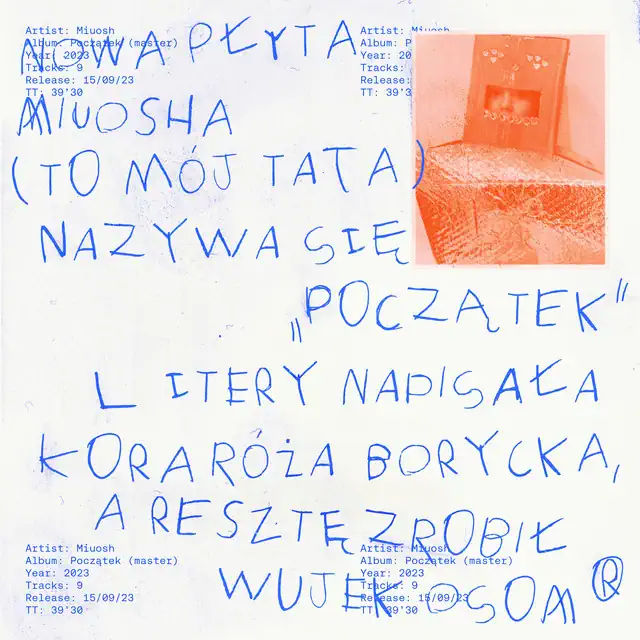 Artist: Miuosh
Album: Początek (master)
Year: 2023
Tracks: 9
Release: 15/09/23
TT: 39'30
Artist: Miuosh
Album: P
Year: 20
Tracks:
Release:
TT: 39'3
NOWA PŁYTA
MIUOSHA
(TO MÓJ TATA)
NAZYWA SIĘ
„POCZĄTEK"
LITERY NAPISAŁA
KORA RÓŻA BORYCKA,
A RESZTĘ ZROBIŁ
WUJEK OSOM®
Artist: Miuosh
Album: Początek (master)
Year: 2023
Tracks: 9
Release: 15/09/23
TT: 39'30
Artist: Miuosh
Album: Początek (master)
Year: 2023
Tracks: 9
Release: 15/09/23
TT: 39'30